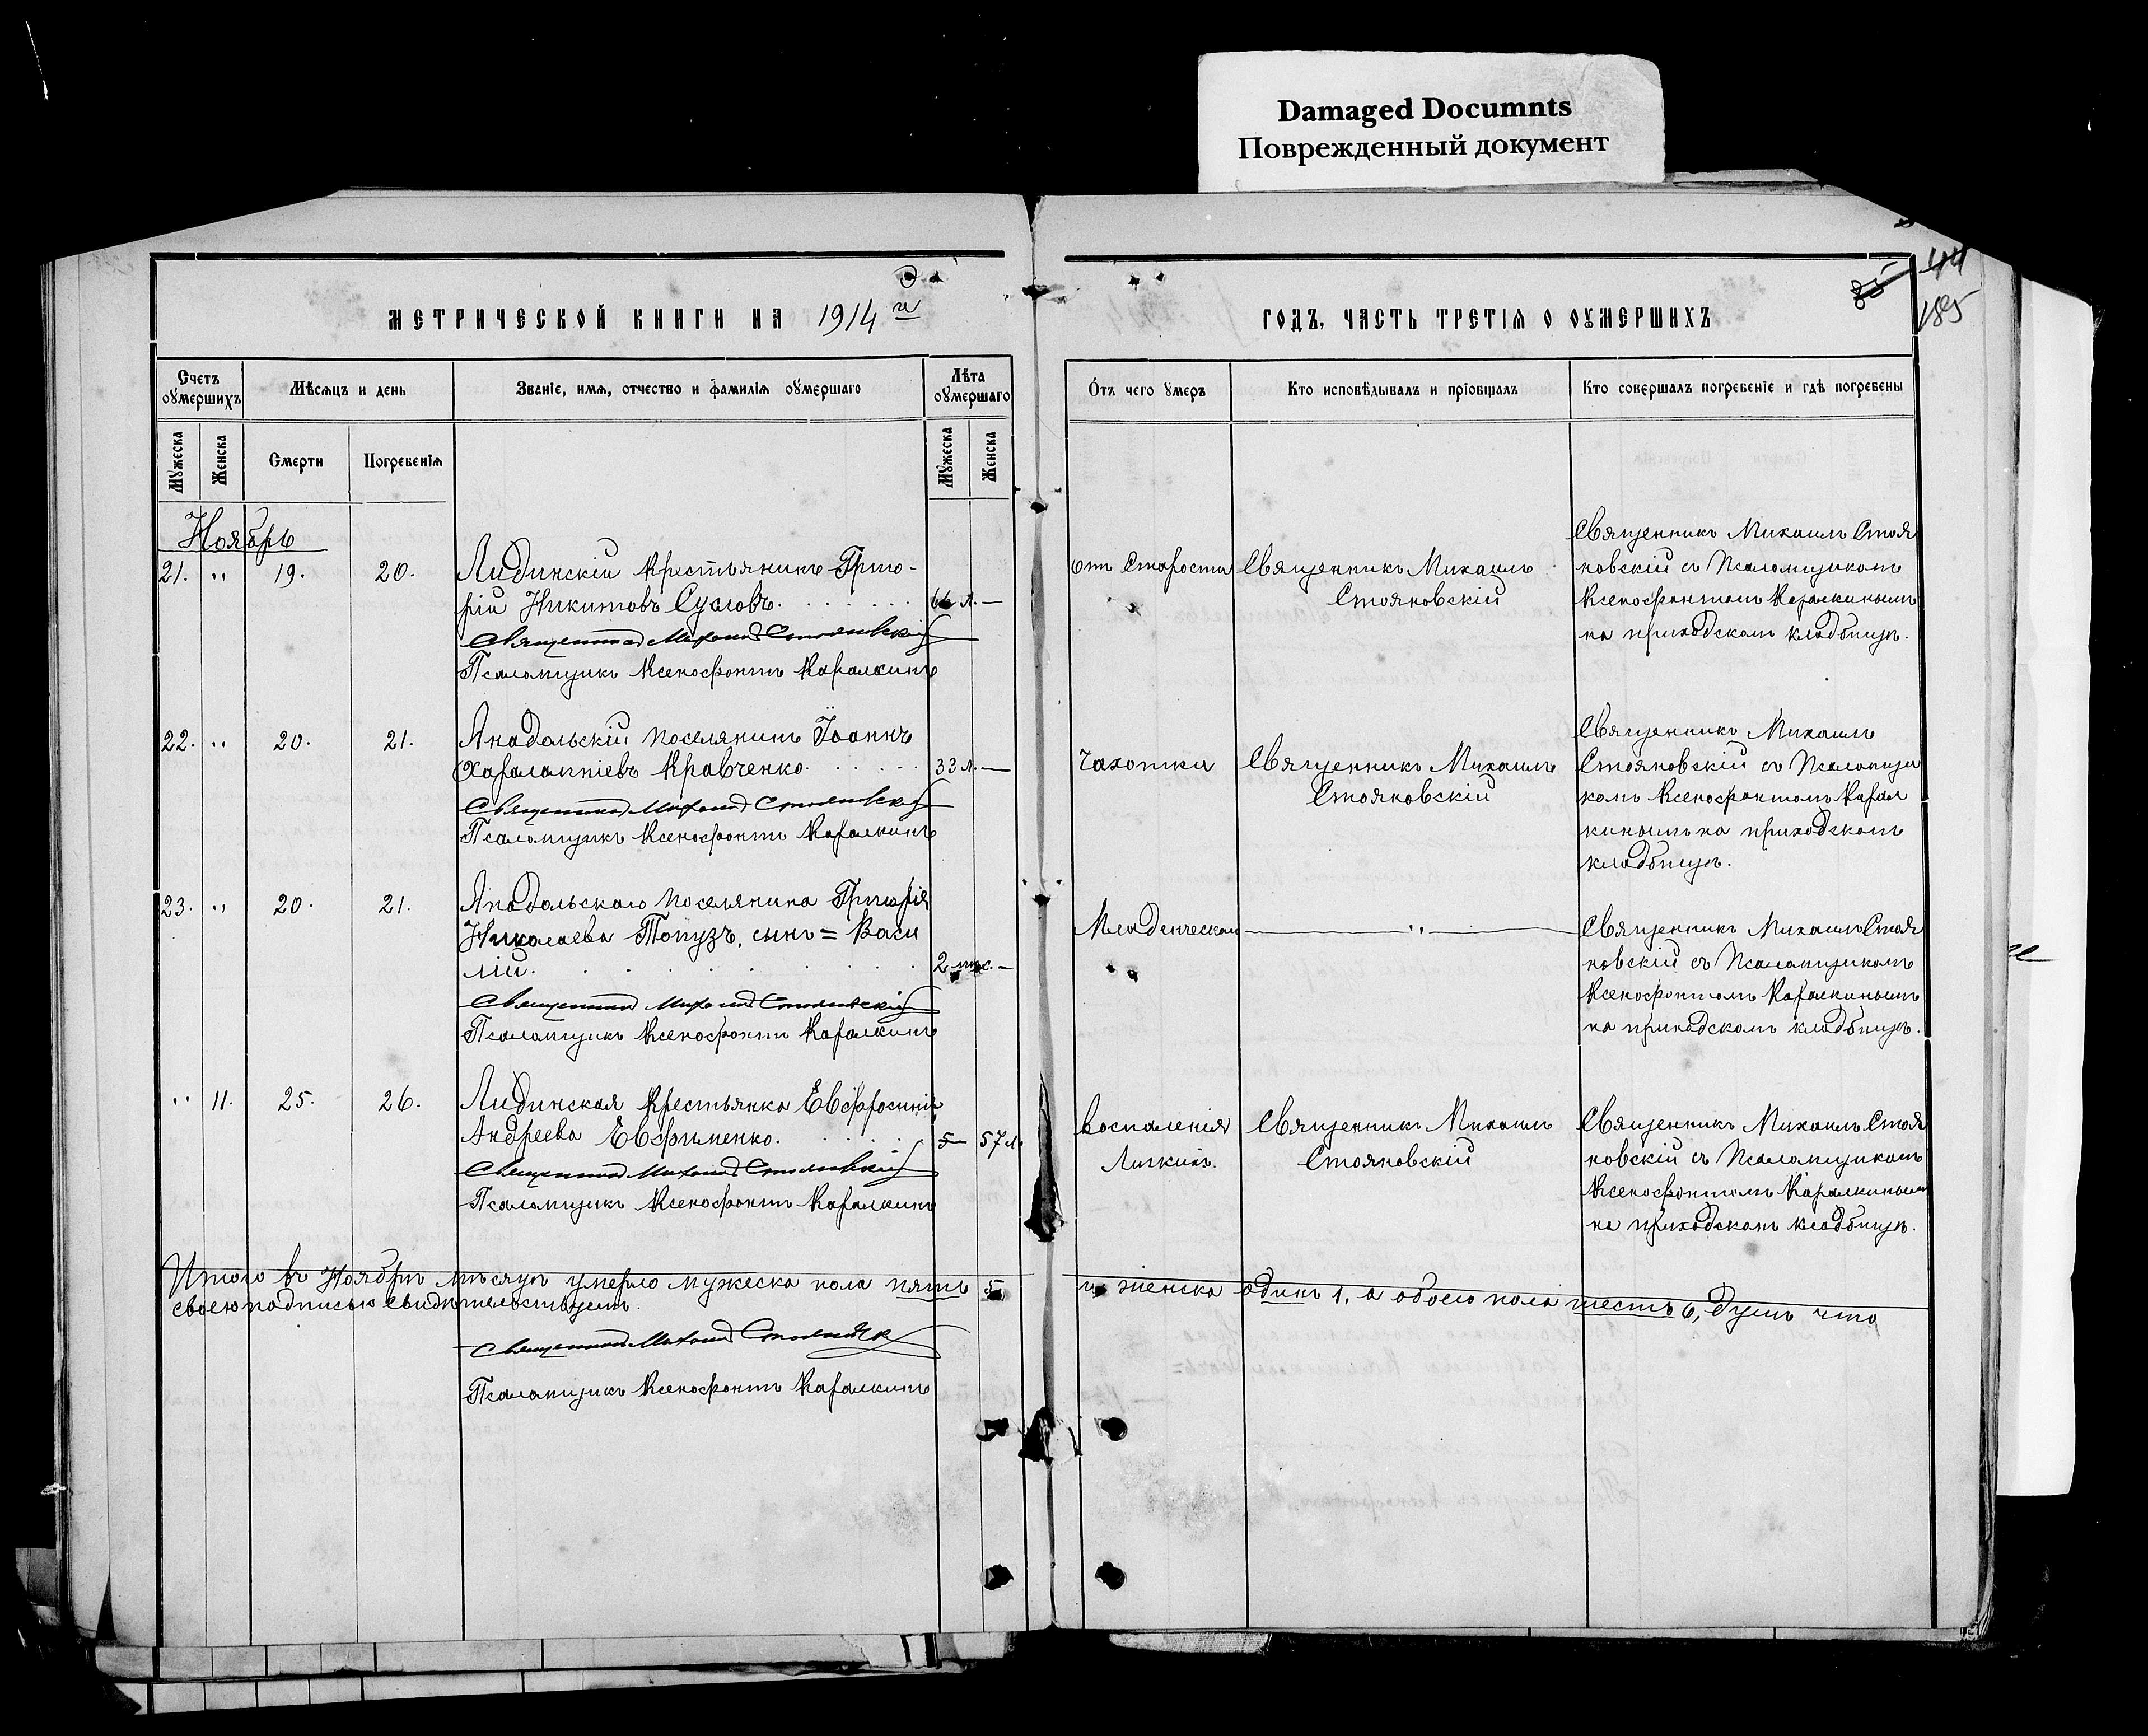 Damaged Documnts
Поврежденный документ
44
85
185
МЕТРИЧЕСКОЙ КНИГИ НА 1914 й
ГОДЪ, ЧАСТЬ ТРЕТІЯ О ОУМЕРШИХЪ
Счетъ оумершихъ
Мѣсяцъ и день
Званіе, имя, отчество и фамилія оумершаго
Лѣта оумершаго
Отъ чего умеръ
Кто исповѣдывалъ и пріобщалъ
Кто совершалъ погребеніе и гдѣ погребены
Мужеска
Женска
Смерти
Погребенія
Мужеска
Женска
Ноябрь
21. " 19. 20.
Лидинскій крестьянинъ Григо-
рій Никитовъ Сусловъ. 66 л. —
Священникъ Михаилъ Стояновскій
Псаломщикъ Ксенофонтъ Каралкинъ
отъ Старости
Священникъ Михаилъ
Стояновскій
Священникъ Михаилъ Стоя
новскій съ Псаломщикомъ
Ксенофонтомъ Каралкинымъ
на приходскомъ кладбищѣ.
22. " 20. 21.
Анадольскій поселянинъ Іоаннъ
Харалампіевъ Кравченко. 33 л. —
Священникъ Михаилъ Стояновскій
Псаломщикъ Ксенофонтъ Каралкинъ
Чахотки
Священникъ Михаилъ
Стояновскій
Священникъ Михаилъ
Стояновскій съ Псаломщи
комъ Ксенофонтомъ Карал
кинымъ на приходскомъ
кладбищѣ.
23. " 20. 21.
Анадольскаго поселянина Григорія
Николаева Топузъ, сынъ = Васи
лій. 2 мѣс. —
Священникъ Михаилъ Стояновскій
Псаломщикъ Ксенофонтъ Каралкинъ
Младенческой
"
Священникъ Михаилъ Стоя
новскій съ Псаломщикомъ
Ксенофонтомъ Каралкинымъ
на приходскомъ кладбищѣ.
" 11. 25. 26.
Лидинская крестьянка Евфросинія
Андреева Евфименко. 57 л.
Священникъ Михаилъ Стояновскій
Псаломщикъ Ксенофонтъ Каралкинъ
воспаленія
Легкихъ.
Священникъ Михаилъ
Стояновскій
Священникъ Михаилъ Стоя
новскій съ Псаломщикомъ
Ксенофонтомъ Каралкинымъ
на приходскомъ кладбищѣ.
Итого въ Ноябрѣ мѣсяцѣ умерло мужеска пола пять 5, и женска одинъ 1, а обоего пола шесть 6, душъ что
своею подписью свидѣтельствуемъ.
Священникъ Михаилъ Стояновск
Псаломщикъ Ксенофонтъ Каралкинъ